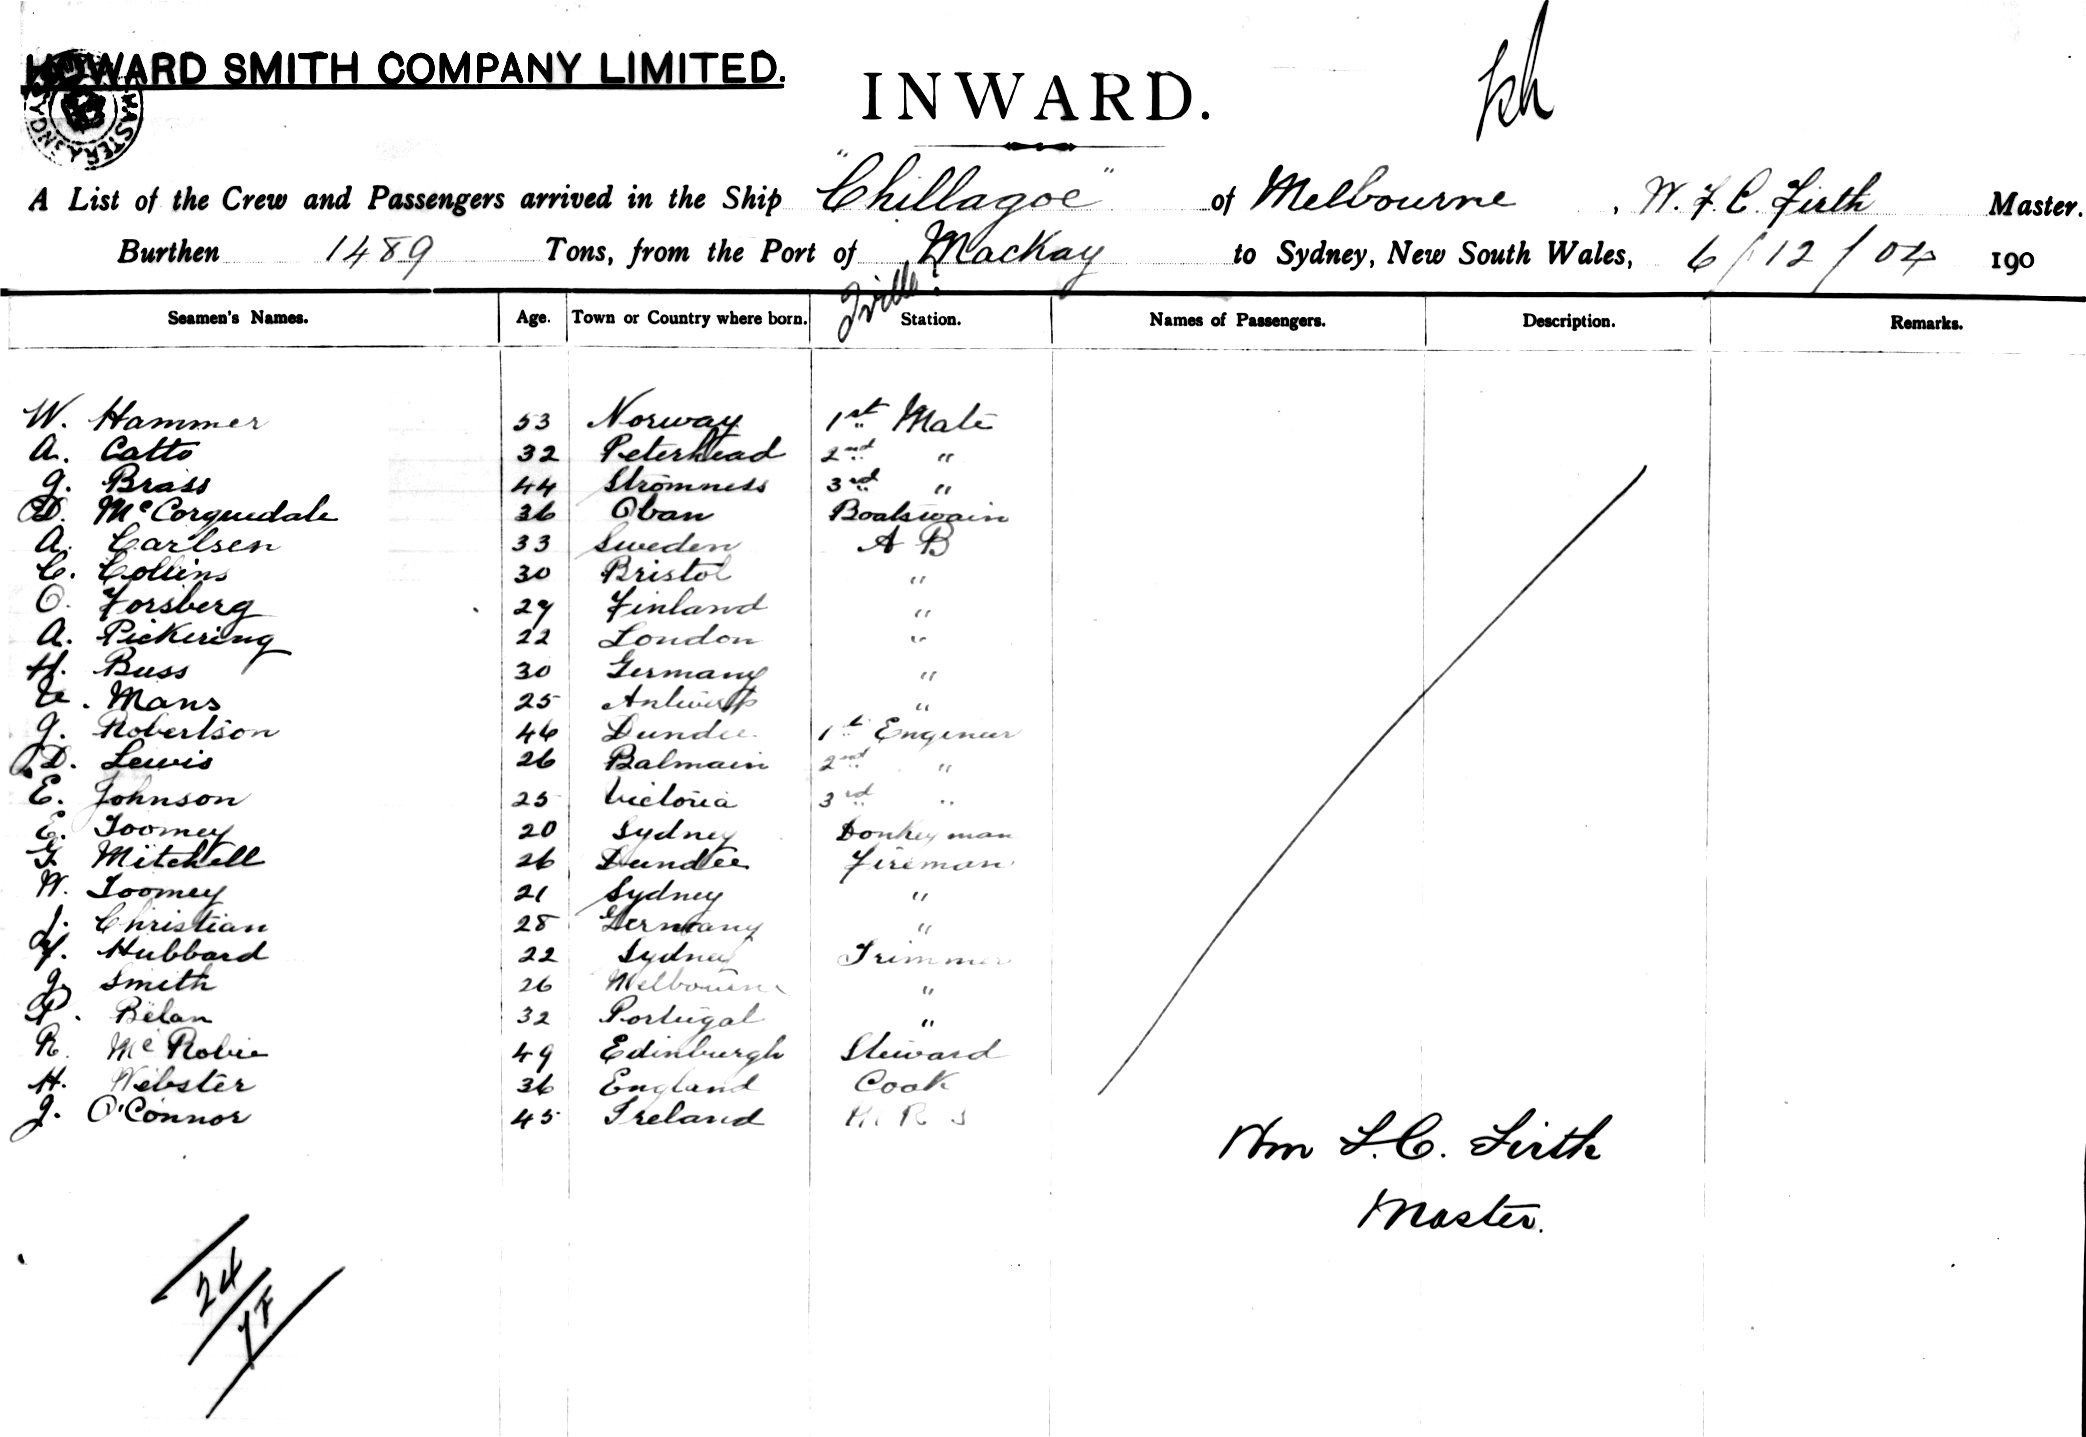 HOWARD SMITH COMPANY LIMITED.
INWARD.
A List of the Crew and Passengers arrived in the Ship "Chillagoe" of Melbourne, W. F. C. Firth Master.
Burthen 1489 Tons, from the Port of Mackay to Sydney, New South Wales, 6/12/04 190
T'ville
Seamen's Names. Age. Town or Country where born. Station. Names of Passengers. Description. Remarks.
W. Hammer 53 Norway 1st Mate
A. Catto 32 Peterhead 2nd "
G. Brass 44 Stromness 3rd "
D. McCorquedale 36 Oban Boatswain
A. Carlsen 33 Sweden A B
C. Collins 30 Bristol "
O. Forsberg 29 Finland "
A. Pickering 22 London "
H. Buss 30 Germany "
Mans 25 Antwerp "
G. Robertson 46 Dundee 1st Engineer
D. Lewis 26 Balmain 2nd "
E. Johnson 25 Victoria 3rd "
E. Toomey 20 Sydney Donkeyman
Mitchell 26 Dundee Fireman
W. Toomey 21 Sydney "
J. Christian 28 Germany "
F. Hubbard 22 Sydney Trimmer
G. Smith 26 Melbourne "
P. Belan 32 Portugal "
R. McRobie 49 Edinburgh Steward
H. Webster 36 England Cook
J. O'Connor 45 Ireland M R S
Wm F. C. Firth
Master.
24